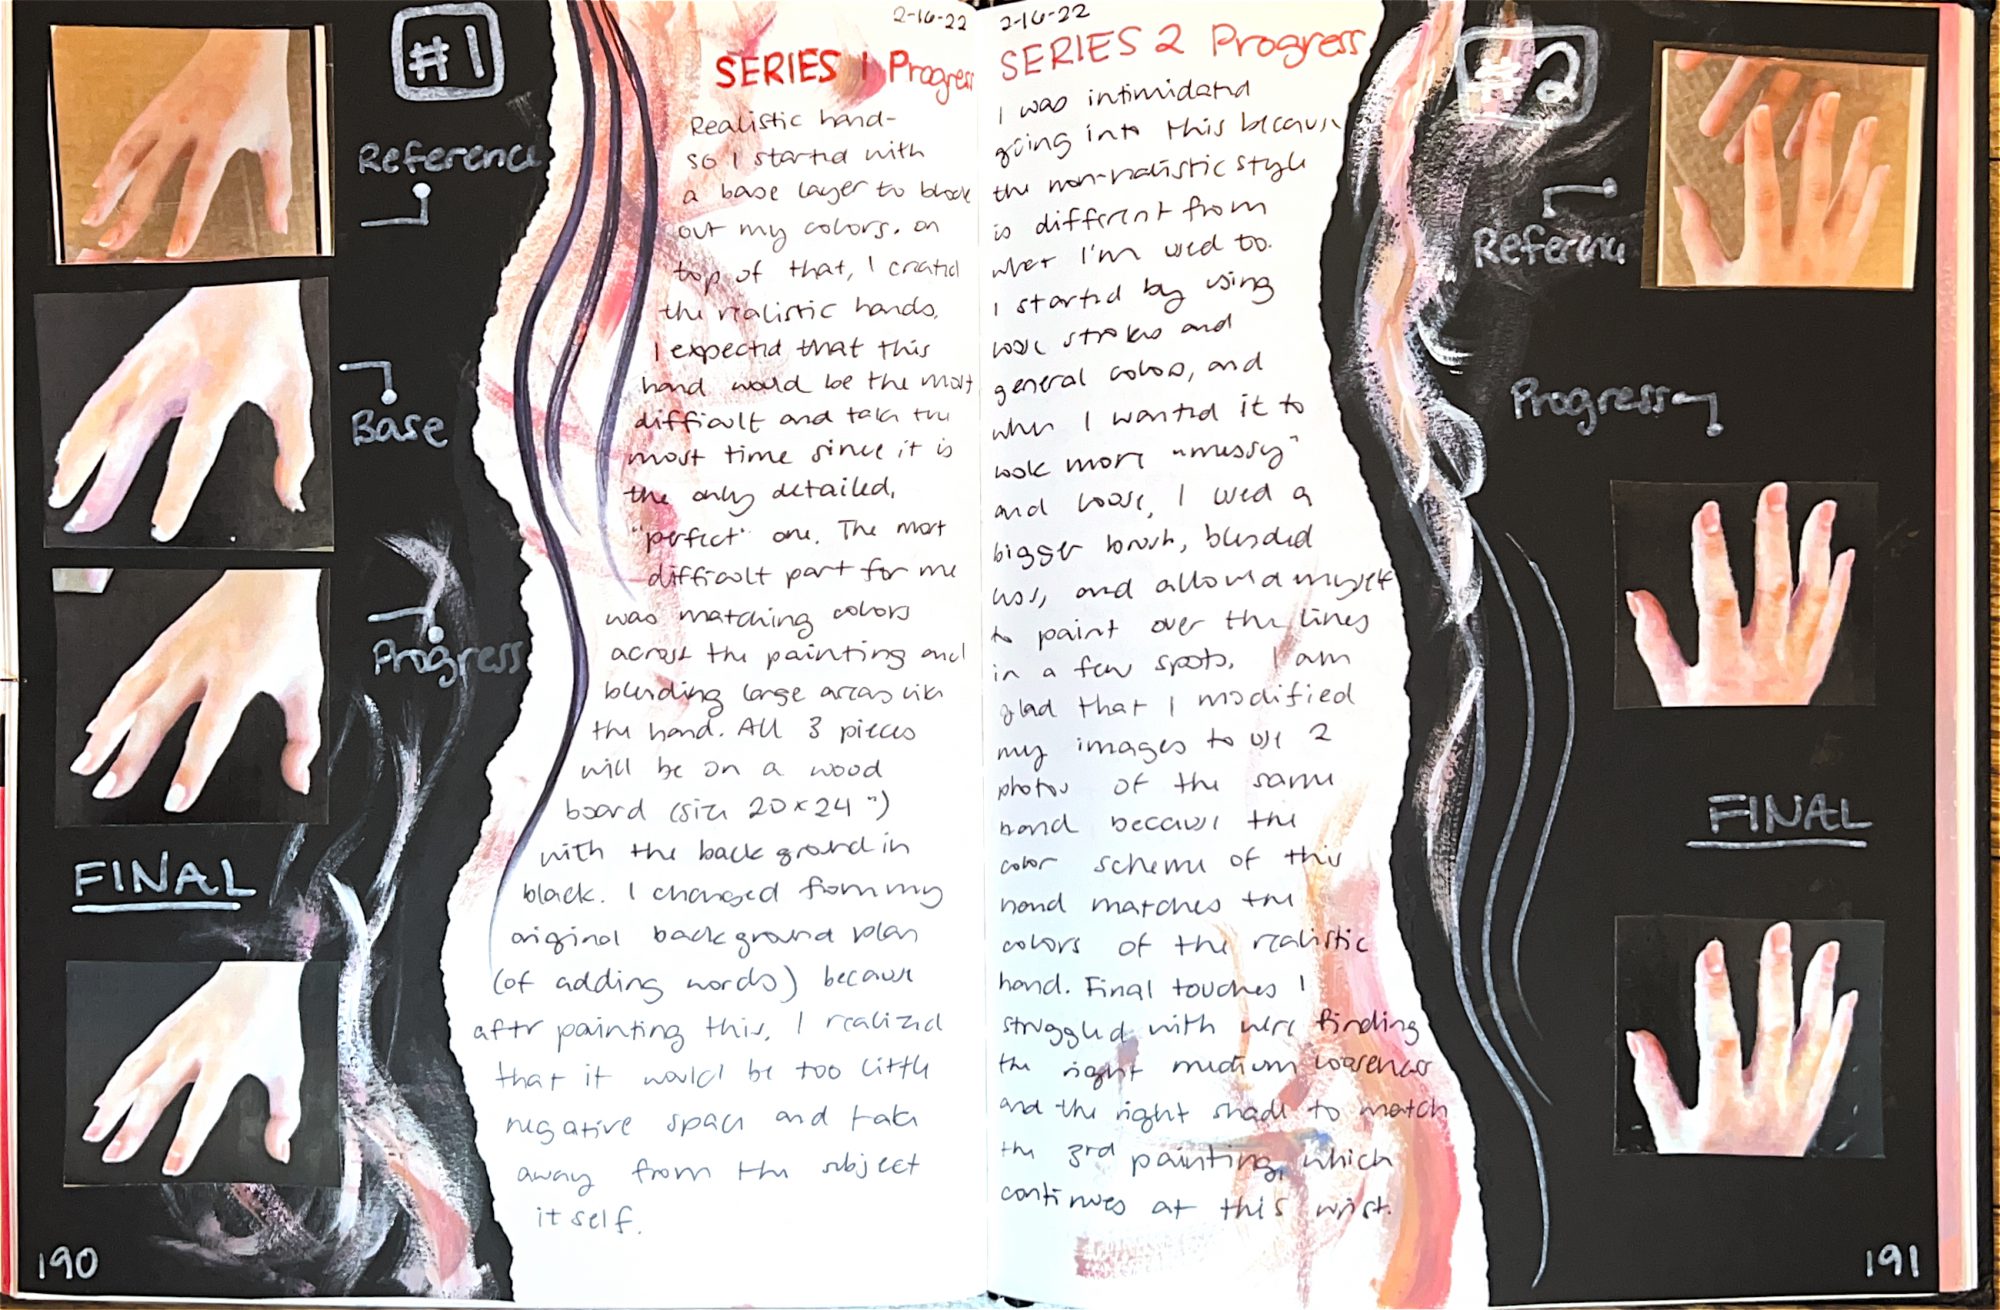 #1
Reference
Base
Progress
FINAL
190
2-16-22
SERIES 1 Progress
Realistic hand-
so I started with
a base layer to block
out my colors. on
top of that, I created
the realistic hands.
I expected that this
hand would be the most
difficult and take the
most time since it is
the only detailed,
"perfect" one. The most
difficult part for me
was matching colors
across the painting and
blending large areas like
the hand. All 3 pieces
will be on a wood
board (size 20x24")
with the background in
black. I changed from my
original background plan
(of adding words) because
aftr painting this, I realized
that it would be too little
negative space and take
away from the subject
itself.
2-16-22
SERIES 2 Progress
I was intimidated
going into this because
the non-realistic style
is different from
what I'm used to.
I started by using
loose strokes and
general colors, and
when I wanted it to
look more "messy"
and loose, I used a
bigger brush, blended
less, and allowed myself
to paint over the lines
in a few spots. I am
glad that I modified
my images to use 2
photos of the same
hand because the
color scheme of this
hand matches the
colors of the realistic
hand. Final touches I
struggled with were finding
the right medium looseness
and the right shade to match
the 3rd painting, which
continues at this wrist.
#2
Reference
Progress
FINAL
191